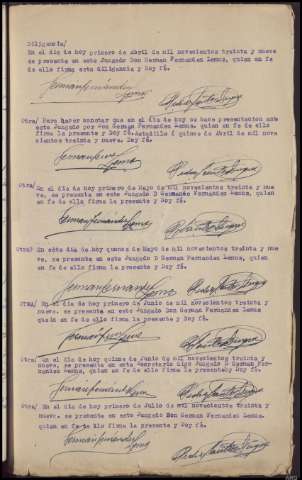 Diligencia/
En el dia de hoy primero de Abril de mil novecientos treinta y nueve
se presenta en este Juzgado Don German Fernandez Lemos, quien en
fe de ello firma esta diligencia y Doy fé.
German Fernandez
Lemos
Otra/ Para hacer constar que en el dia de hoy se hace presentacion ante
este Juzgado por Don German Fernandez Lemos, quien en fe de ello
firma la presente y Doy fé. a quince de Abril de mil nove
cientos treinta y nueve. Doy fé.
German Fernandez
Lemos
Otra/ En el dia de hoy primero de Mayo de mil novecientos treinta y nue
ve, se presenta en este Juzgado Don German Fernandez Lemos, quien
en fe de ello firma la presente y Doy fé.
German Fernandez Lemos
Otra/ En este dia de hoy quince de Mayo de mil novecientos treinta y nue
ve, se presenta en este Juzgado D German Fernandez Lemos, quien
en fe de ello firma la presente y Doy fé.
German Fernandez
Lemos
Otra/ En el dia de hoy primero de Junio de mil novecientos treinta y
nueve, se presenta en este Juzgado Don German Fernandez Lemos
quien en fe de ello firma la presente y Doy fé.
German Fernandez Lemos
Otra/ En el dia de hoy quince de Junio de mil novecientos treinta y
nueve, se presenta en este Juzgado D German Fernandez
Lemos, quien en fe de ello firma la presente y Doy fé.
German Fernandez Lemos
Otra/ En el dia de hoy primero de Julio de mil novecientos treinta y
nueve, se presenta en este Juzgado Don German Fernandez Lemos
quien en fe de ello firma la presente y Doy fé.
German Fernandez
Lemos